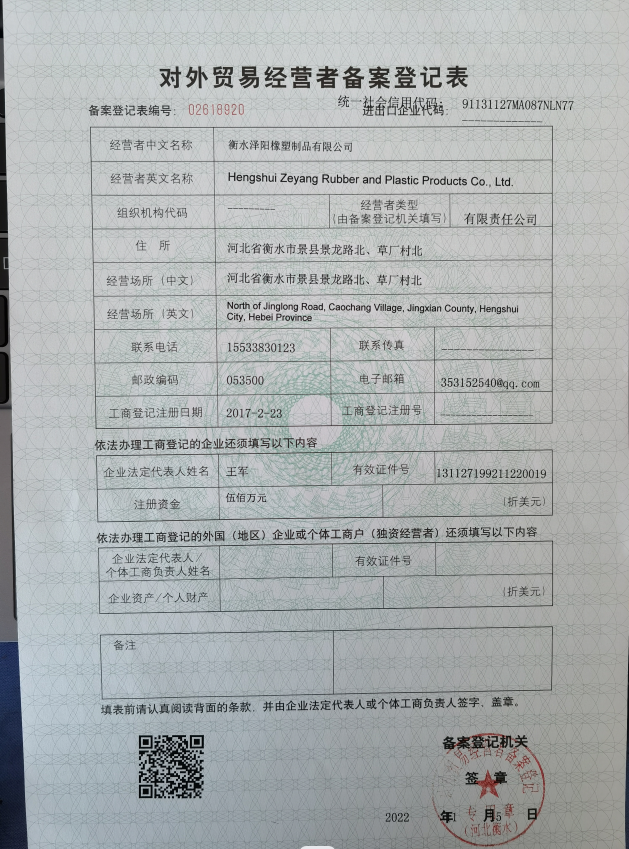 对外贸易经营者备案登记表
备案登记表编号: 02618920
统一社会信用代码: 91131127MA087NLN77
进出口企业代码: ______________
经营者中文名称 衡水泽阳橡塑制品有限公司
经营者英文名称 Hengshui Zeyang Rubber and Plastic Products Co., Ltd.
组织机构代码 --------- 经营者类型
(由备案登记机关填写) 有限责任公司
住 所 河北省衡水市景县景龙路北、草厂村北
经营场所(中文) 河北省衡水市景县景龙路北、草厂村北
经营场所(英文) North of Jinglong Road, Caochang Village, Jingxian County, Hengshui
City, Hebei Province
联系电话 15533830123 联系传真 ________________
邮政编码 053500 电子邮箱 353152540@qq.com
工商登记注册日期 2017-2-23 工商登记注册号 ________________
依法办理工商登记的企业还须填写以下内容
企业法定代表人姓名 王军 有效证件号 131127199211220019
注册资金 伍佰万元 (折美元)
依法办理工商登记的外国(地区)企业或个体工商户(独资经营者)还须填写以下内容
企业法定代表人/
个体工商负责人姓名 有效证件号
企业资产/个人财产 (折美元)
备注
填表前请认真阅读背面的条款,并由企业法定代表人或个体工商负责人签字、盖章。
备案登记机关
签 章
专用章
(河北衡水)
2022 年1 月5 日